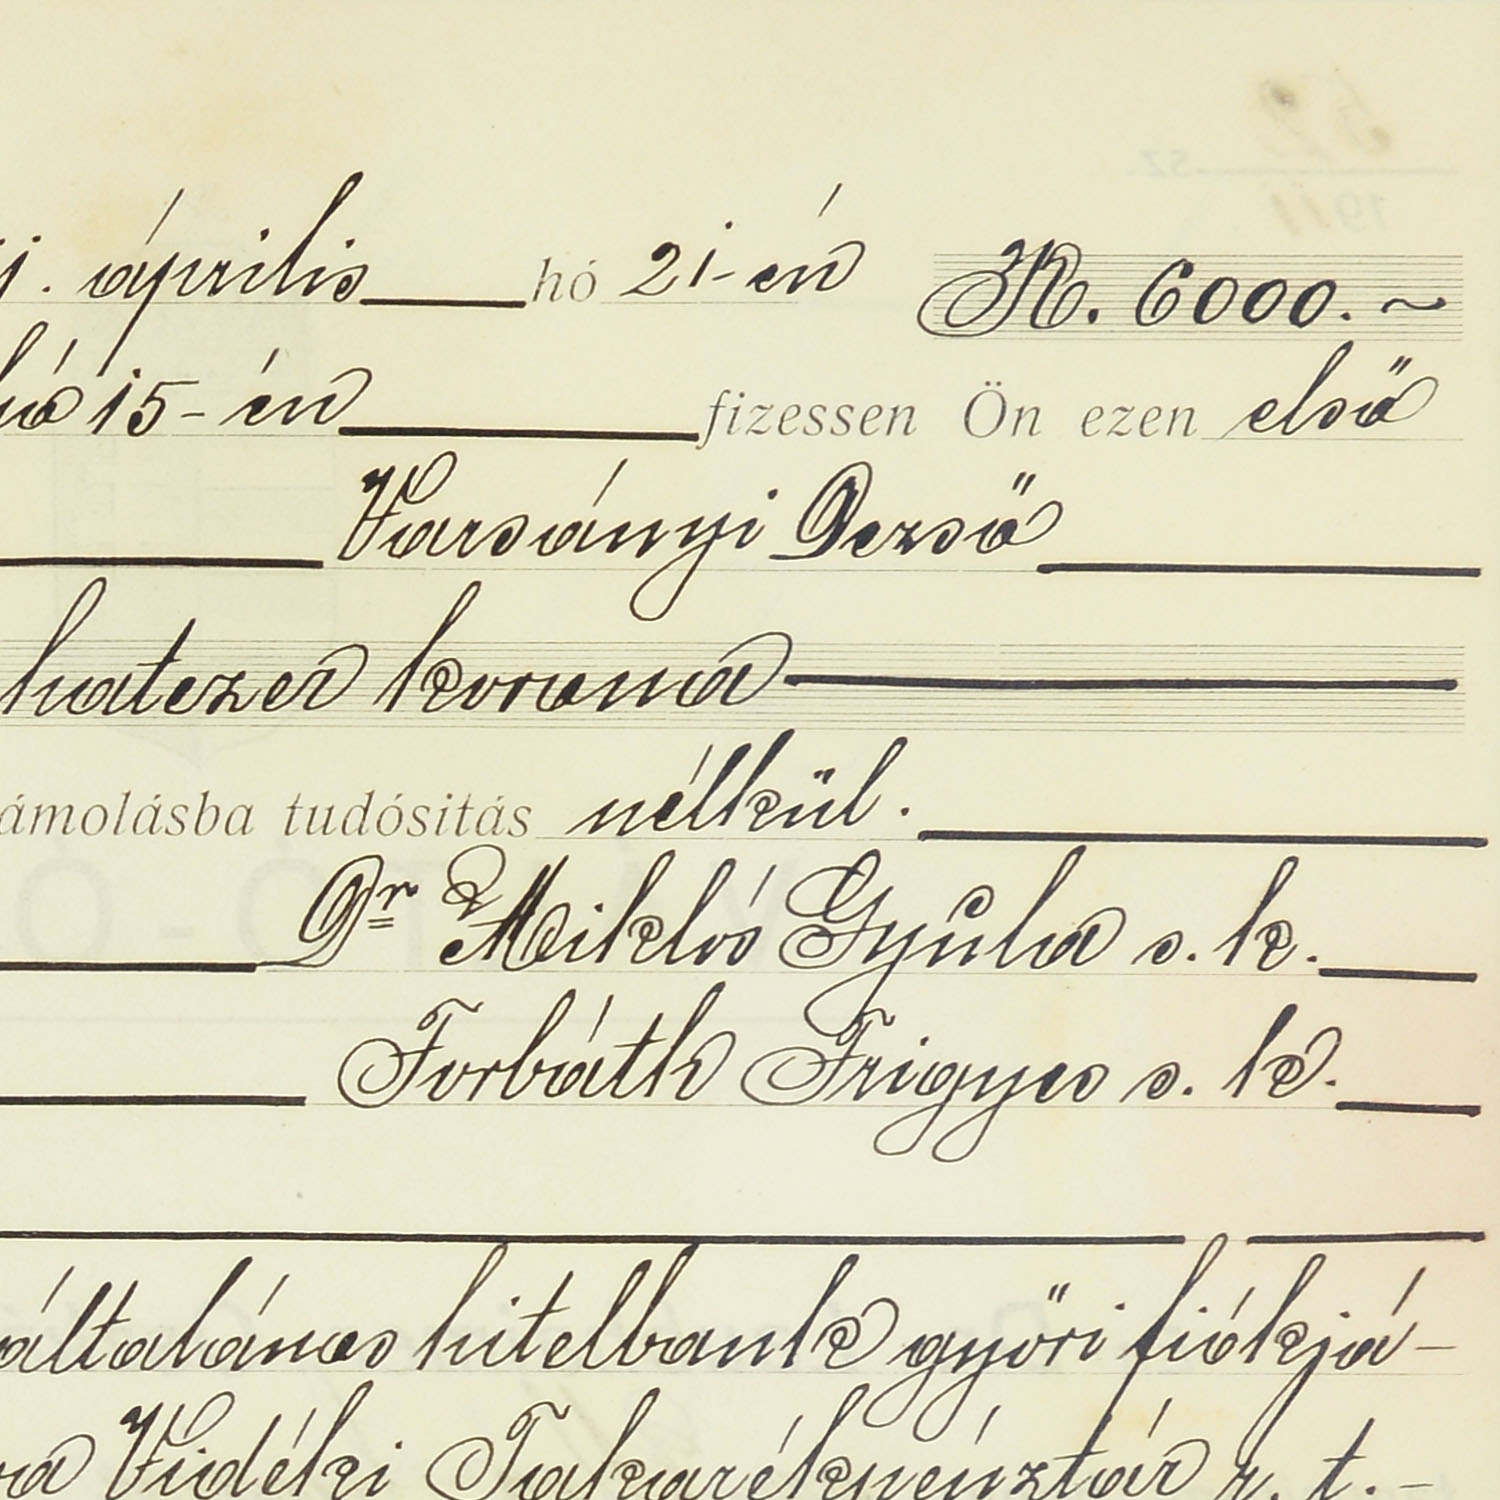 április hó 21-én K. 6000.~
hó 15-én fizessen Ön ezen első
Varsányi Dezső
hatezer korona
ámolásba tudósitás nélkül.
Dr Miklós Gyula s. k.
Forbáth Frigyes s. k.
általános hitelbank győri fiókjá-
Vidéki Takarékpénztár r. t.-